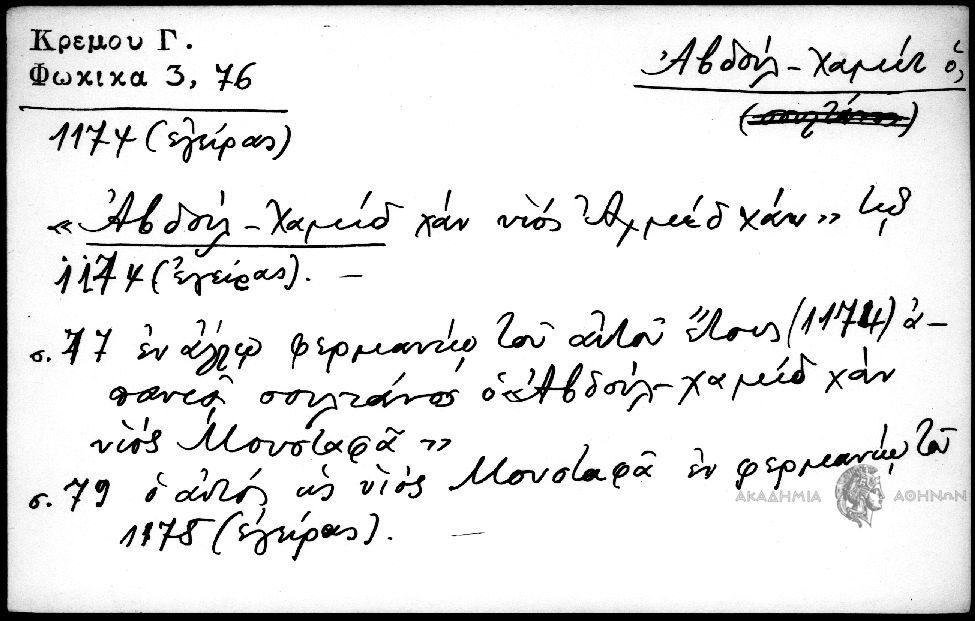 Κρεμου Γ.
Φωκικα 3, 76
Ἀβδοὺλ-Χαμεὶτ ὁ,
(σουλτάνος)
1174 (ἐγείρας)
«Ἀβδοὺλ-Χαμεὶδ χὰν υἱὸς Ἀχμὲδ χὰν» τῷ
1174 (ἐγείρας). —
σ. 77 ἐν ἄλλῳ φερμανίῳ τοῦ αὐτοῦ ἔτους (1174) ἀ-
παντᾷ σουλτάνος ὁ «Ἀβδοὺλ-χαμεὶδ χὰν
υἱὸς Μουσταφᾶ»
σ. 79 ὁ αὐτὸς ὡς υἱὸς Μουσταφᾶ ἐν φερμανίῳ τοῦ
1178 (ἐγείρας). —
ΑΚΑΔΗΜΙΑ ΑΘΗΝΩΝ